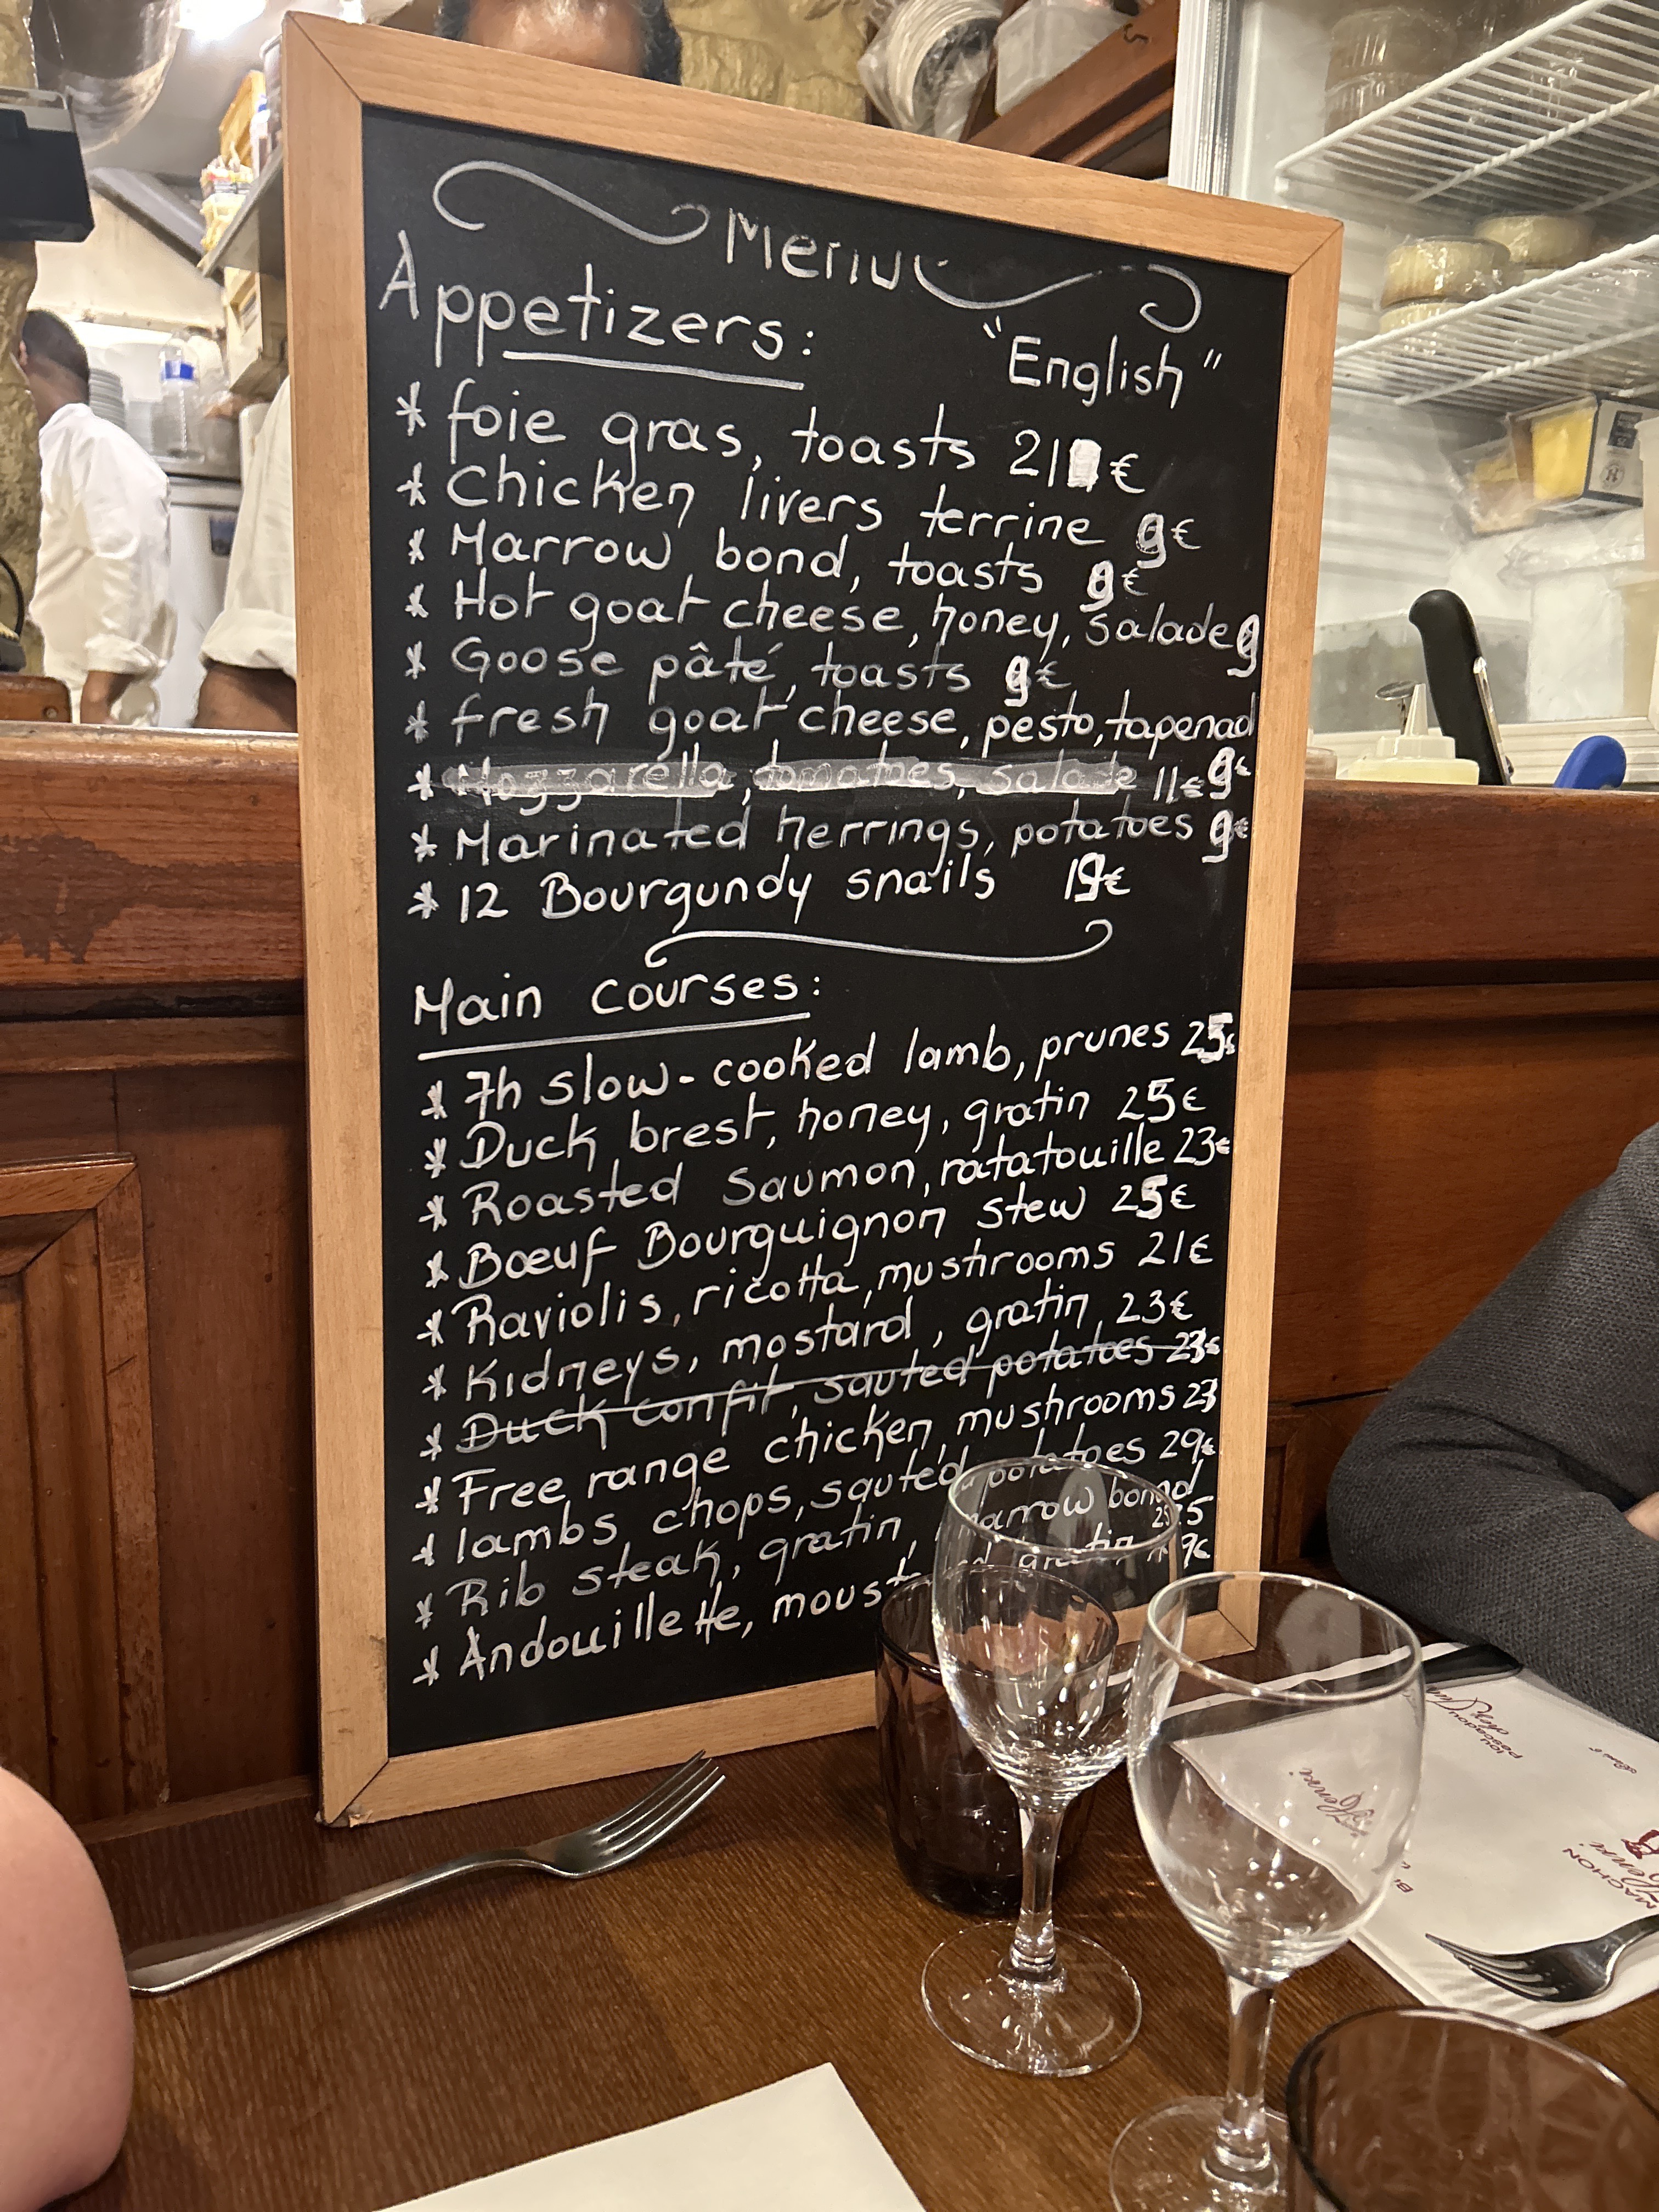 Menu
Appetizers:
"English"
* foie gras, toasts 21€
* Chicken livers terrine 9€
* Marrow bond, toasts 9€
* Hot goat cheese, honey, salade 9
* Goose pâté, toasts 9€
* fresh goat cheese, pesto, tapenad
* Mozzarella, tomatoes, salade 11€ 9€
* Marinated herrings, potatoes 9€
* 12 Bourgundy snails 19€
Main courses:
* 7h slow-cooked lamb, prunes 25€
* Duck brest, honey, gratin 25€
* Roasted Saumon, ratatouille 23€
* Bœuf Bourguignon stew 25€
* Raviolis, ricotta, mushrooms 21€
* Kidneys, mostard, gratin 23€
* Duck confit, sauted potatoes 23€
* Free range chicken, mushrooms 23
* lambs chops, sauted potatoes 29€
* Rib steak, gratin, marrow bond
* Andouillette, moust gratin
MACHON